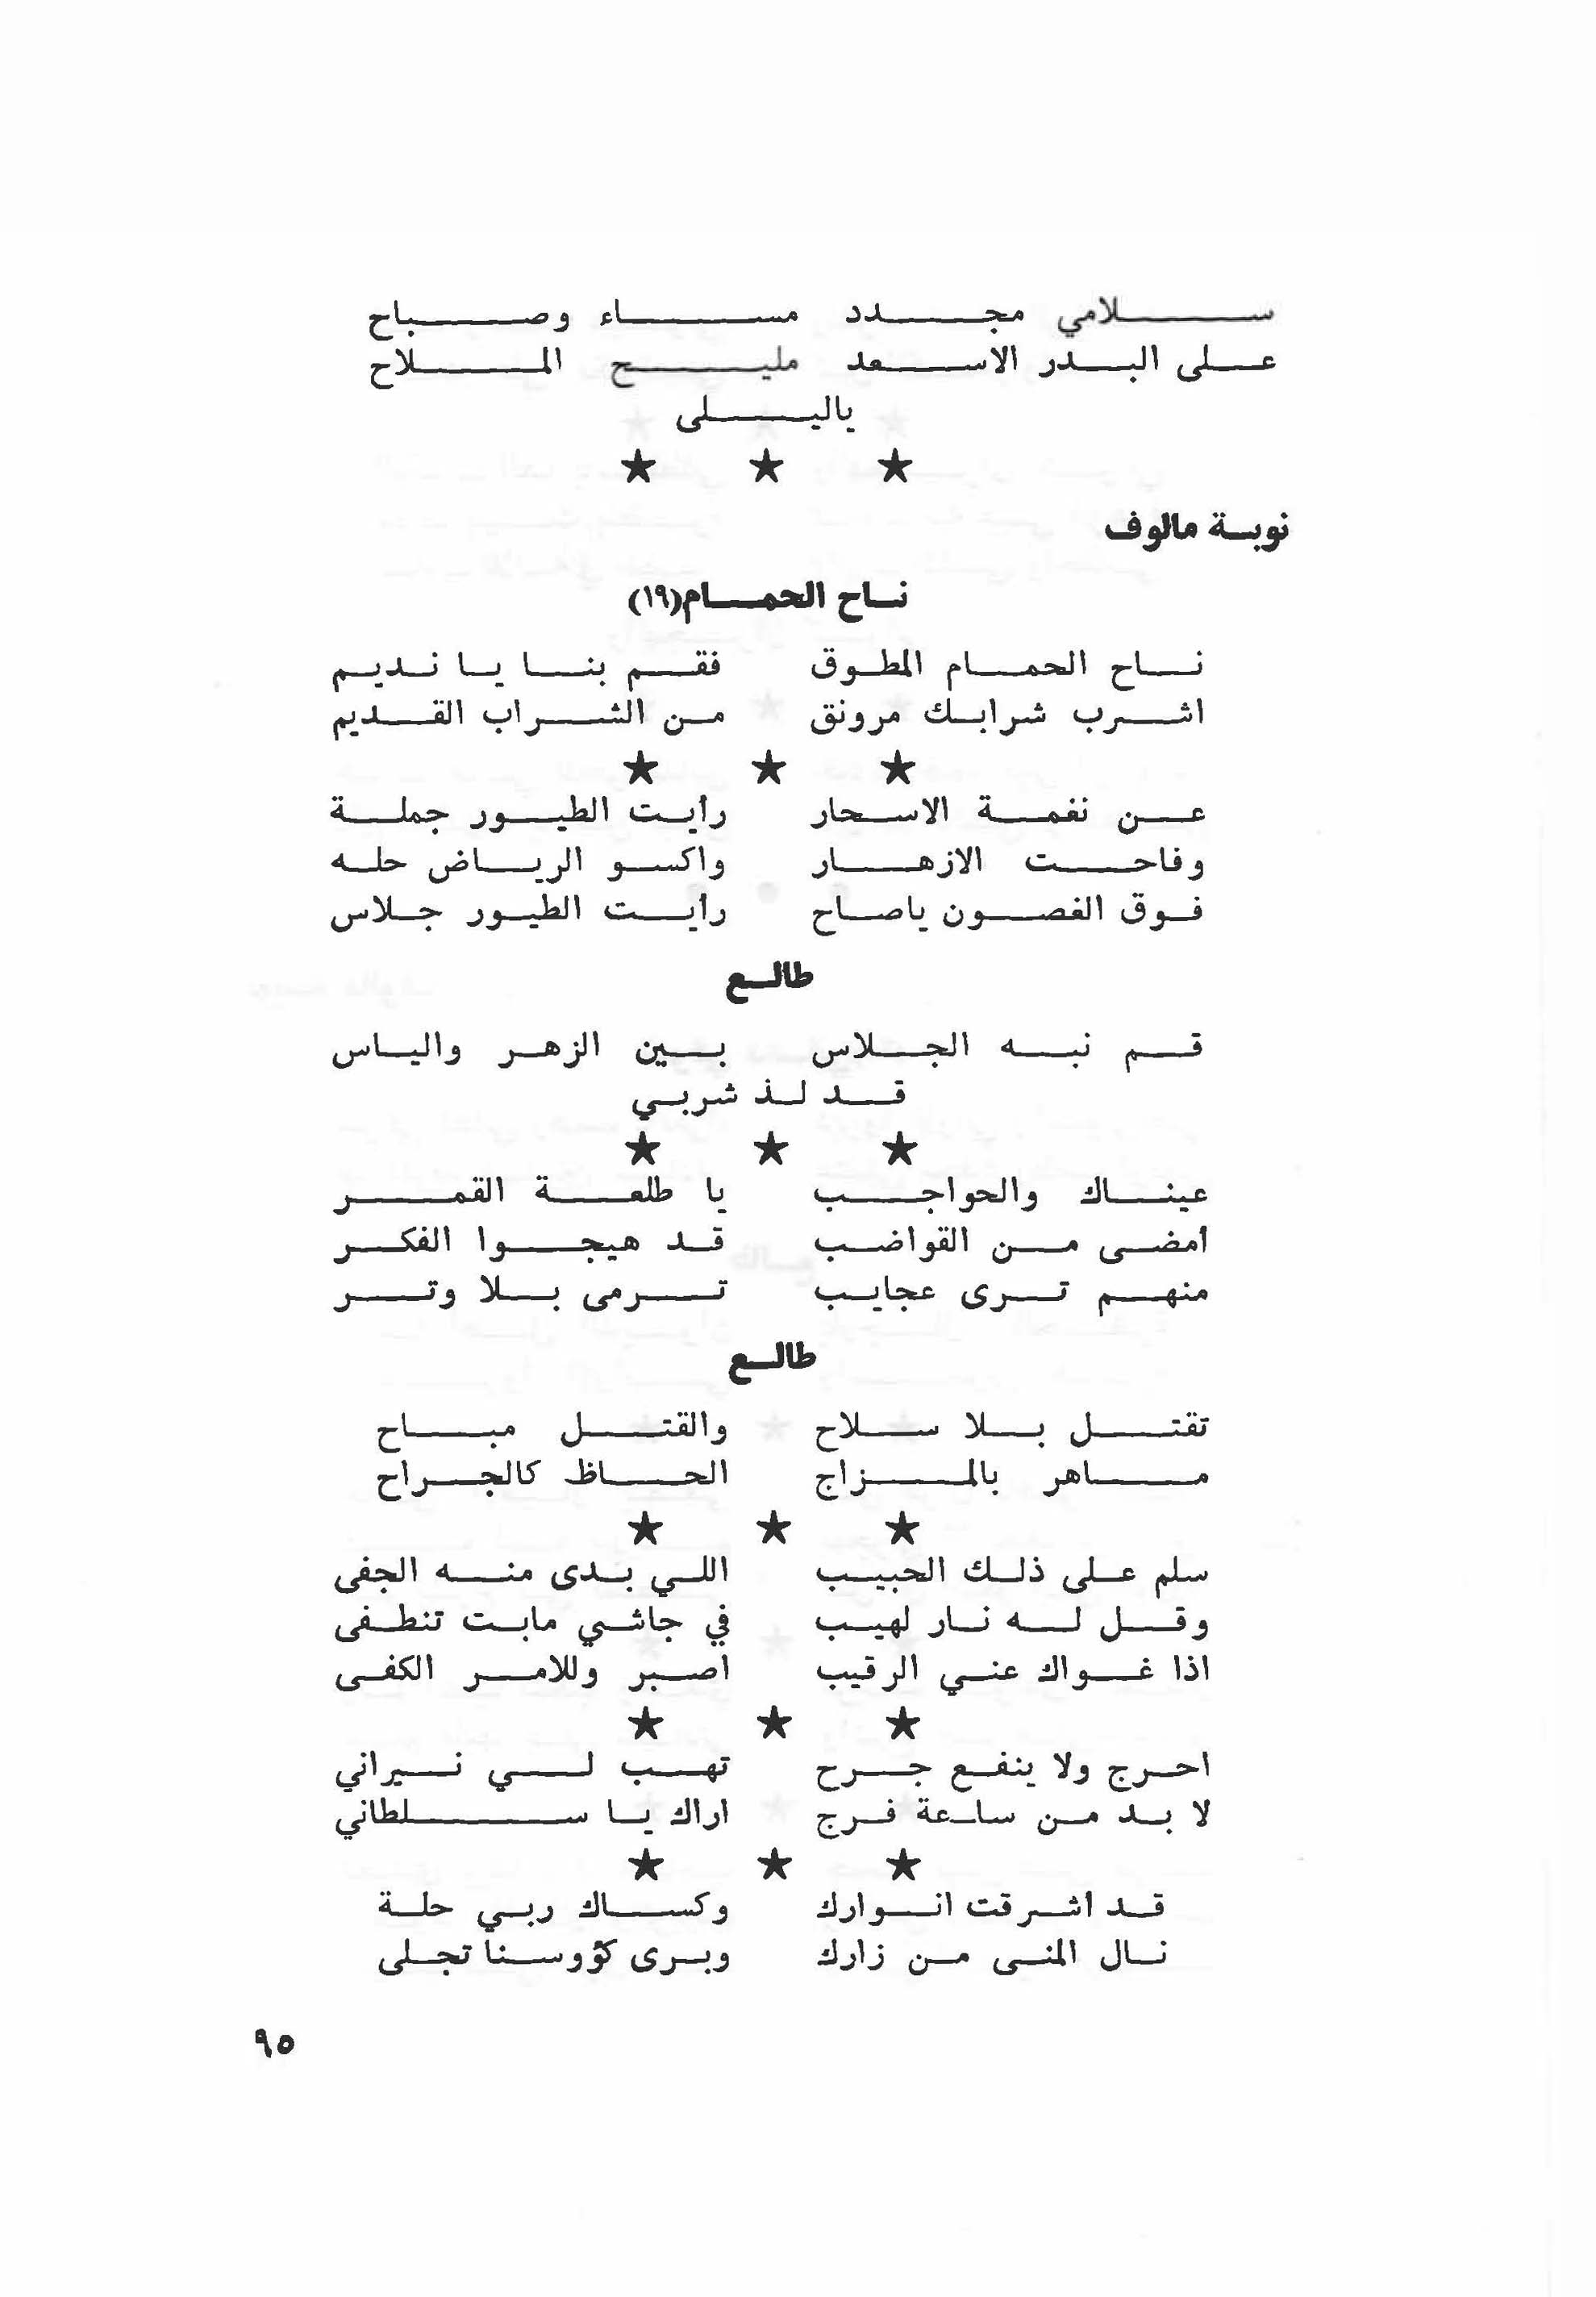 سلامي مجدد مساء وصباح
على البدر الاسعد مليح الملاح
ياليلى
★ ★ ★
نوبة مالوف
ناح الحمام(١٩)
ناح الحمام المطوق فقم بنا يا نديم
اشرب شرابك مرونق من الشراب القديم
★ ★ ★
عن نغمة الاسحار رأيت الطيور جملة
وفاحت الازهار واكسو الرياض حله
فوق الغصون ياصاح رأيت الطيور جلاس
طالع
قم نبه الجلاس بين الزهر والياس
قد لذ شربي
★ ★ ★
عيناك والحواجب يا طلعة القمر
أمضى من القواضب قد هيجوا الفكر
منهم ترى عجايب ترمى بلا وتر
طالع
تقتل بلا سلاح والقتل مباح
ماهر بالمزاج الحاظ كالجراح
★ ★ ★
سلم على ذلك الحبيب اللي بدى منه الجفى
وقل له نار لهيب في جاشي مابت تنطفى
اذا غواك عني الرقيب اصبر وللامر الكفى
★ ★ ★
احرج ولا ينفع جرح تهب لي نيراني
لا بد من ساعة فرج اراك يا سلطاني
★ ★ ★
قد اشرقت انوارك وكساك ربي حلة
نال المنى من زارك وبرى كؤوسنا تجلى
٩٥